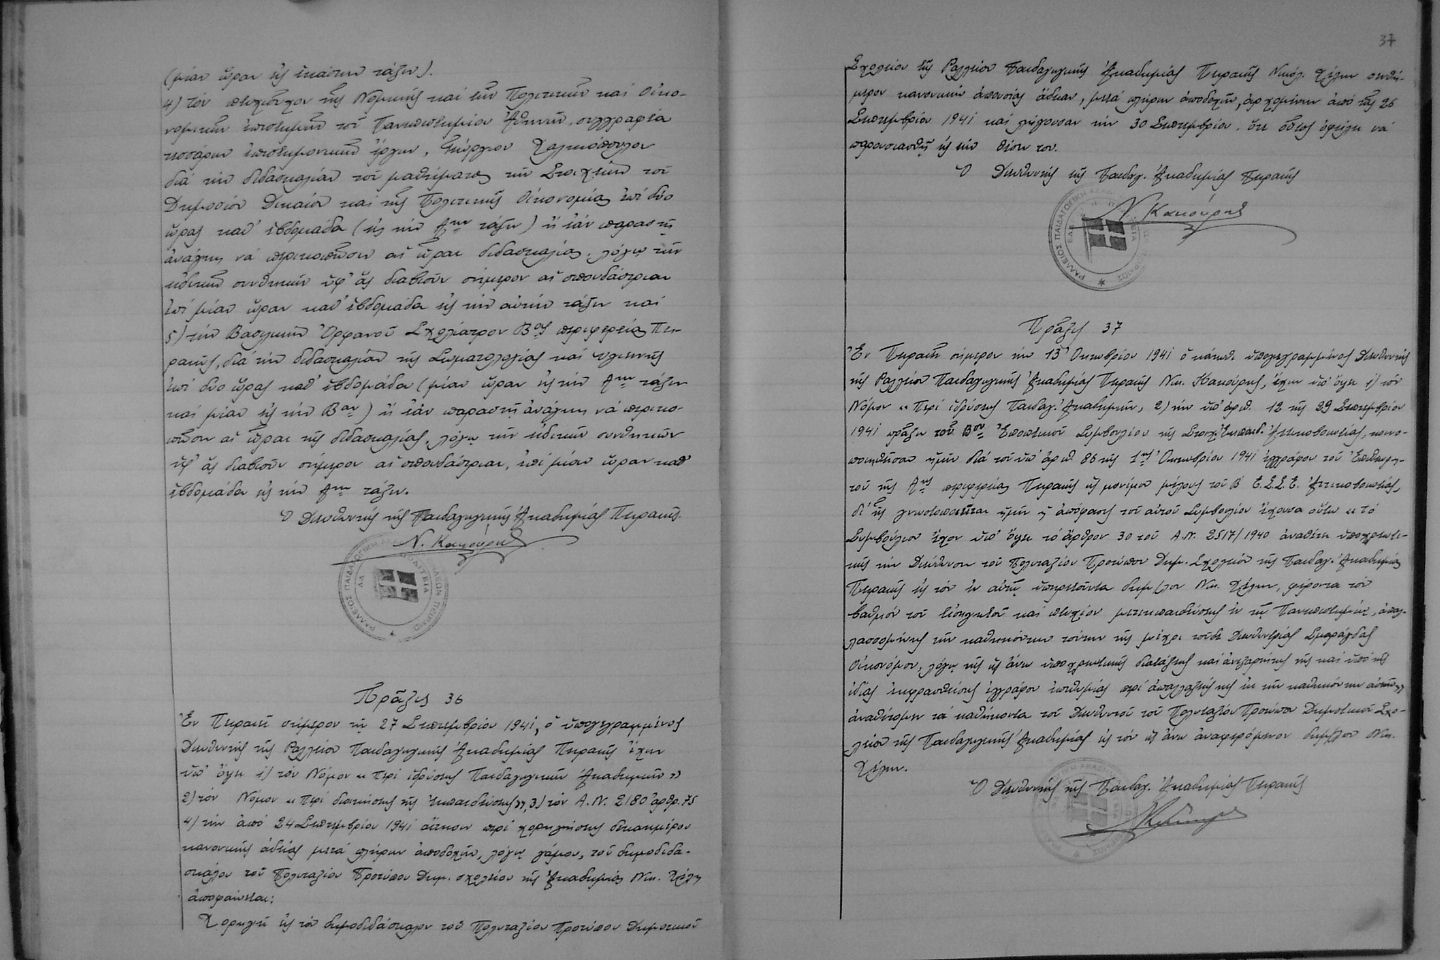 (μίαν ὥραν εἰς ἑκάστην τάξιν).
4) τὸν πτυχιοῦχον τῆς Νομικῆς καὶ τῶν Πολιτικῶν καὶ Οἰκο-
νομικῶν ἐπιστημῶν τοῦ Πανεπιστημίου Ἀθηνῶν, συγγραφέα
τεσσάρων ἐπιστημονικῶν ἔργων, Γεώργιον Χαλκιόπουλον
διὰ τὴν διδασκαλίαν τοῦ μαθήματος τῶν Στοιχείων τοῦ
Δημοσίου Δικαίου καὶ τῆς Πολιτικῆς Οἰκονομίας ἐπὶ δύο
ὥρας καθ' ἑβδομάδα (εἰς τὴν Αην τάξιν) ἢ ἐὰν παραστῇ
ἀνάγκη νὰ περικοποῦν αἱ ὧραι διδασκαλίας, λόγῳ τῶν
εἰδικῶν συνθηκῶν ὑφ' ἃς διαβιοῦν σήμερον αἱ σπουδάστριαι
ἐπὶ μίαν ὥραν καθ' ἑβδομάδα εἰς τὴν αὐτὴν τάξιν καὶ
5) τὴν Βασιλικὴν Ὀρφανοῦ Σχολίατρον Βας περιφερείας Πει-
ραιῶς, διὰ τὴν διδασκαλίαν τῆς Σωματολογίας καὶ Ὑγιεινῆς
ἐπὶ δύο ὥρας καθ' ἑβδομάδα (μίαν ὥραν εἰς τὴν Αην τάξιν
καὶ μίαν εἰς τὴν Βαν) ἢ ἐὰν παραστῇ ἀνάγκη νὰ περικο-
ποῦν αἱ ὧραι τῆς διδασκαλίας, λόγῳ τῶν εἰδικῶν συνθηκῶν
ὑφ' ἃς διαβιοῦν σήμερον αἱ σπουδάστριαι, ἐπὶ μίαν ὥραν καθ'
ἑβδομάδα εἰς τὴν Αην τάξιν.
Ὁ Διευθυντὴς τῆς Παιδαγωγικῆς Ἀκαδημίας Πειραιῶς.
Ν. Κακούρης
Πρᾶξις 36
Ἐν Πειραιεῖ σήμερον τῇ 27 Σεπτεμβρίου 1941, ὁ ὑπογεγραμμένος
Διευθυντὴς τῆς Ραλλείου Παιδαγωγικῆς Ἀκαδημίας Πειραιῶς ἔχων
ὑπ' ὄψει 1) τὸν Νόμον «περὶ ἱδρύσεως Παιδαγωγικῶν Ἀκαδημιῶν»
2) τὸν Νόμον «περὶ διοικήσεως τῆς ἐκπαιδεύσεως», 3) τὸν Α.Ν. 2180 ἄρθρ. 75
4) τὴν ἀπὸ 24 Σεπτεμβρίου 1941 αἴτησιν περὶ χορηγήσεως δεκαημέρου
κανονικῆς ἀδείας μετὰ πλήρων ἀποδοχῶν, λόγῳ γάμου, τοῦ δημοδιδα-
σκάλου τοῦ Πολυταξίου Προτύπου Δημ. σχολείου τῆς Ἀκαδημίας Νικ.
ἀποφαίνεται:
Χορηγεῖ εἰς τὸν δημοδιδάσκαλον τοῦ Πολυταξίου Προτύπου Δημοτικοῦ
37
Σχολείου τῆς Ραλλείου Παιδαγωγικῆς Ἀκαδημίας Πειραιῶς Νικόλ.
κανονικὴν ἀπουσίας ἄδειαν, μετὰ πλήρων ἀποδοχῶν, ἀρχομένην ἀπὸ τῆς 26
Σεπτεμβρίου 1941 καὶ λήγουσαν τὴν 30 Σεπτεμβρίου, ὅτε οὗτος ὀφείλει νὰ
παρουσιασθῇ εἰς τὴν θέσιν του.
Ὁ Διευθυντὴς τῆς Παιδαγ. Ἀκαδημίας Πειραιῶς
Ν. Κακούρης
Πρᾶξις 37
Ἐν Πειραιεῖ σήμερον τὴν 13 Ὀκτωβρίου 1941 ὁ κάτωθι ὑπογεγραμμένος Διευθυντὴς
τῆς Ραλλείου Παιδαγωγικῆς Ἀκαδημίας Πειραιῶς Νικ. Κακούρης, ἔχων ὑπ' ὄψει 1) τὸν
Νόμον «περὶ ἱδρύσεως Παιδαγ. Ἀκαδημιῶν, 2) τὴν ὑπ' ἀριθ. 12 τῆς 29 Σεπτεμβρίου
1941 πρᾶξιν τοῦ Βου Ἐποπτικοῦ Συμβουλίου τῆς Στοιχ. Ἐκπαιδ. Ἀττικοβοιωτίας, κοινο-
ποιηθεῖσαν ἡμῖν διὰ τοῦ ὑπ' ἀριθ. 86 τῆς 1ης Ὀκτωβρίου 1941 ἐγγράφου τοῦ Ἐπιθεωρη-
τοῦ τῆς Αης περιφερείας Πειραιῶς ὡς μονίμου μέλους τοῦ Β Ε.Σ.Σ.Ε. Ἀττικοβοιωτίας,
δι' ἧς γνωστοποιεῖται ἡμῖν ἡ ἀπόφασις τοῦ αὐτοῦ Συμβουλίου ἔχουσα οὕτω «τὸ
Συμβούλιον ἔχον ὑπ' ὄψει τὸ ἄρθρον 30 τοῦ Α.Ν. 2517/1940 ἀναθέτει ὑποχρεωτι-
κῶς τὴν Διεύθυνσιν τοῦ Πολυταξίου Προτύπου Δημ. Σχολείου τῆς Παιδαγ. Ἀκαδημίας
Πειραιῶς εἰς τὸν ἐν αὐτῷ ὑπηρετοῦντα δημ/λον Νικ. φέροντα τὸν
βαθμὸν τοῦ Εἰσηγητοῦ καὶ πτυχίον μετεκπαιδεύσεως ἐν τῷ Πανεπιστημίῳ, ἀπαλ-
λασσομένης τῶν καθηκόντων τούτων τῆς μέχρι τοῦδε Διευθυντρίας Σμαράγδας
Οἰκονόμου, λόγῳ τῆς ὡς ἄνω ὑποχρεωτικῆς διατάξεως καὶ ἀνεξαρτήτως τῆς καὶ ὑπὸ τῆς
ἰδίας ἐκφρασθείσης ἐγγράφου ἐπιθυμίας περὶ ἀπαλλαγῆς της ἐκ τῶν καθηκόντων αὐτῶν»,
ἀναθέτομεν τὰ καθήκοντα τοῦ Διευθυντοῦ τοῦ Πολυταξίου Προτύπου Δημοτικοῦ Σχο-
λείου τῆς Παιδαγωγικῆς Ἀκαδημίας εἰς τὸν ὡς ἄνω ἀναφερόμενον δημ/λον Νικ.
Ὁ Διευθυντὴς τῆς Παιδαγ. Ἀκαδημίας Πειραιῶς